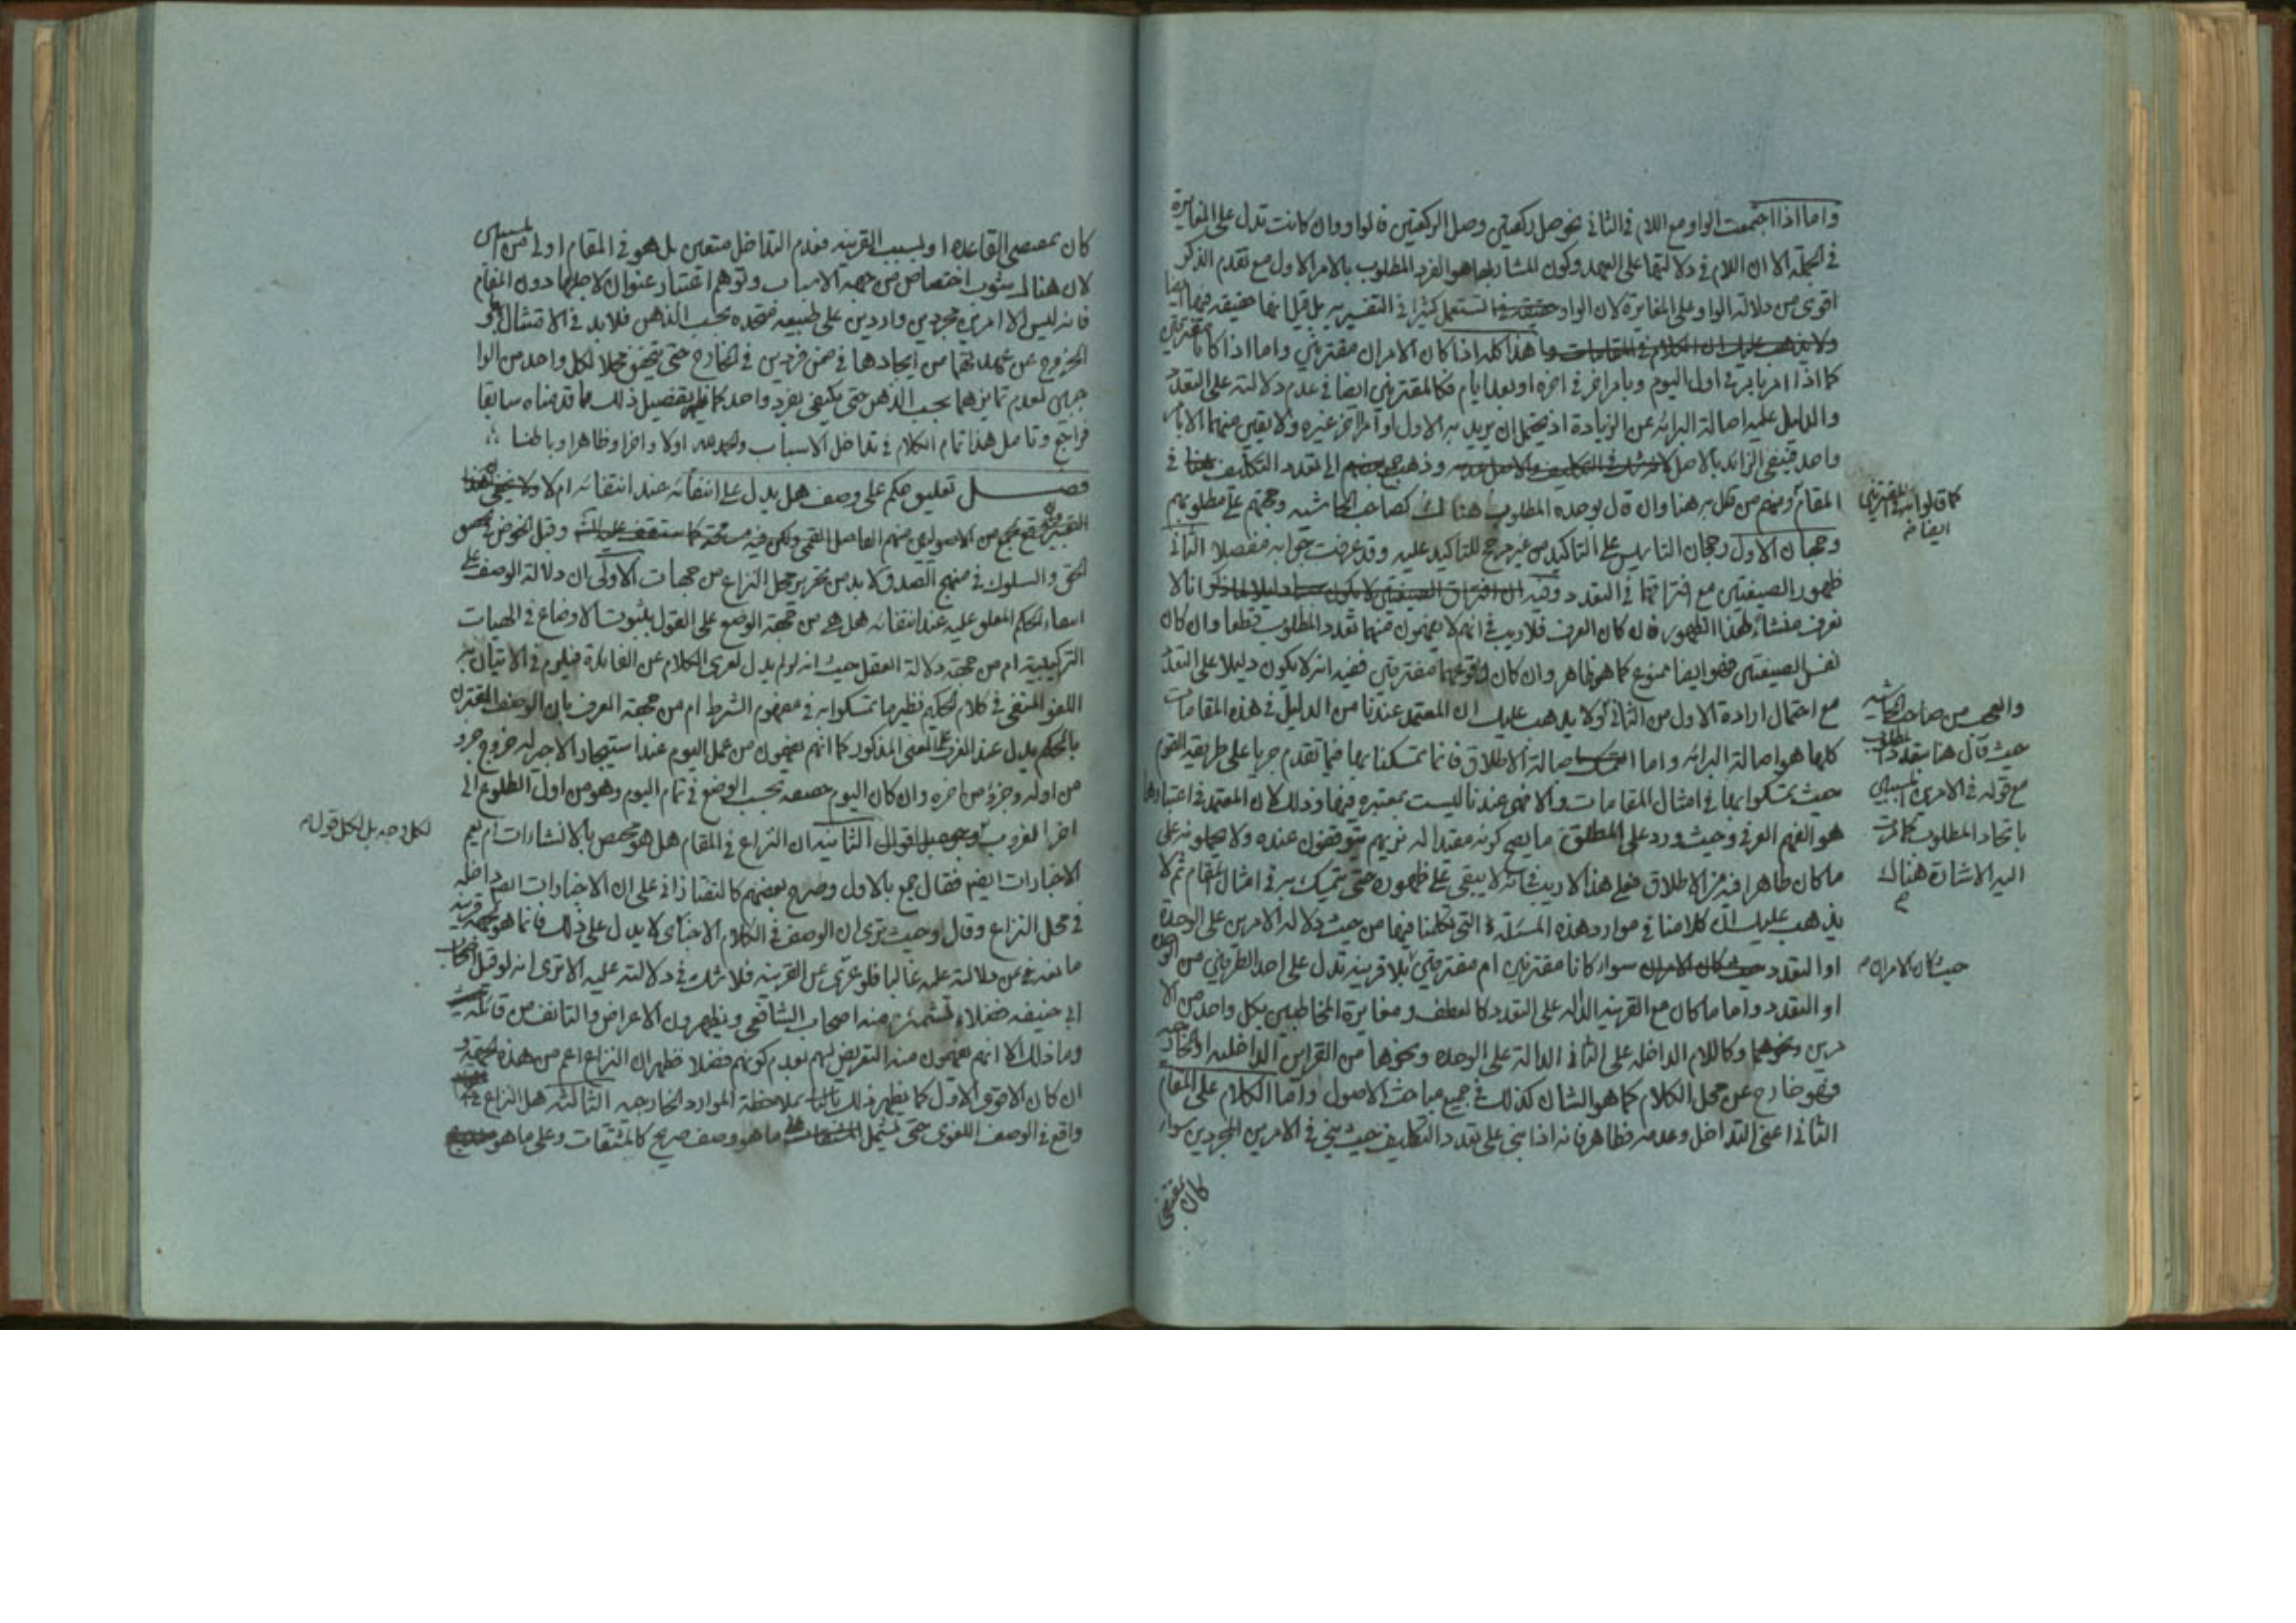 واما اذا اجتمعت الواو مع اللام في الثاني نحو صل ركعتين وصل الركعتين فالواو وان كانت تدل على المغايرة
في الجملة الا ان اللام في دلالتها على العهد وكون المشار بها هو الفرد المطلوب بالامر الاول مع تقدم الذكر
اقوى من دلالة الواو على المغايرة لان الواو تستعمل كثيرا في التفسير بل قيل انها حقيقة فيها ايضا
هذا كله اذا كان الامران مقترنين واما اذا كانا مفترقين
كما اذا امر بامر في اول اليوم وبامر اخر في اخره او بعد ايام فكالمقترنين ايضا في عدم دلالته على التعدد
والدليل عليه اصالة البرائة عن الزيادة اذ يحتمل ان يريد به الاول او امرا اخر غيره ولا يقين منهما الا بامر
واحد فينفى الزائد بالاصل وذهب جمع الى تعدد التكليف في
المقام ومنهم من قال به هنا وان قال بوحدة المطلوب هناك كصاحب الحاشية وحجتهم على مطلوبهم
وجهان الاول رجحان التاسيس على التاكيد من غير مرجح للتاكيد عليه وقد عرفت جوابه مفصلا الثاني
ظهور الصيغتين مع افتراقهما في التعدد وفيه انا لا
نعرف منشأ لهذا الظهور فان كان العرف فلا ريب في انهم لا يفهمون منهما تعدد المطلوب قطعا وان كان
نفس الصيغتين فهو ايضا ممنوع كما هو ظاهر وان كان وقوعهما مفترقين ففيه انه لا يكون دليلا على التعدد
مع احتمال ارادة الاول من الثاني ولا يذهب عليك ان المعتمد عندنا من الدليل في هذه المقامات
كلها هو اصالة البرائة واما اصالة الاطلاق فانما تمسكنا بها فيما تقدم جريا على طريقة القوم
حيث تمسكوا بها في امثال المقامات والا فهي عندنا ليست بمعتبرة فيها وذلك لان المعتمد في اعتبارها
هو الفهم العرفي وحيث ورد على المطلق ما يصح كونه مقيدا له نريهم يتوقفون عنده ولا يحملونه على
ما كان ظاهرا فيه من الاطلاق فعلى هذا لا ريب في انه لا يبقى على ظهوره حتى يتمسك به في امثال المقام ثم لا
يذهب عليك ان كلامنا في موارد هذه المسئلة التي تكلمنا فيها من حيث دلالة الامرين على الوحدة
او التعدد سواء كانا مقترنين ام مفترقين بلا قرينة تدل على احد الطرفين من الوحدة
او التعدد واما ما كان مع القرينة الدالة على التعدد كالعطف ومغايرة المخاطبين بكل واحد من الا
مرين وكاللام الداخلة على الثاني الدالة على الوحدة ونحوها من القراين الداخلية او الخارجية
فهو خارج عن محل الكلام كما هو الشان كذلك في جميع مباحث الاصول واما الكلام على المقام
الثاني اعني التداخل وعدمه فظاهر فانه اذا بني على تعدد التكليف حيث بني في الامرين المجردين سواء
كان بمقتضى
كما قالوا به في المقترنين
ايضا م
والعجب من صاحب الحاشية
حيث قال هنا بتعدد المطلوب
مع قوله في الامرين
باتحاد المطلوب كما مرت
اليه الاشارة هناك
م
حيث كان الامران م
كان بمقتضى القاعدة او بسبب القرينة فعدم التداخل متعين بل هو في المقام اولى من
لان هناك شوب اختصاص من جهة الاسباب وتوهم اعتبار عنوان لاجلها دون المقام
فانه ليس الا امرين مجردين واردين على طبيعة متحدة بحسب الذهن فلا بد في الامتثال و
الخروج عن عهدتهما من ايجادها في ضمن فردين في الخارج حتى يتحقق محلا لكل واحد من الوا
جبين لعدم تمايزهما بحسب الذهن حتى يكتفى بفرد واحد كما ظهر تفصيل ذلك مما قدمناه سابقا
فراجع وتامل هذا تمام الكلام في تداخل الاسباب والحمد لله اولا واخرا وظاهرا وباطنا
فصل تعليق حكم على وصف هل يدل على انتفائه عند انتفائه ام لا
التعبير وقع عن جمع من الاصوليين منهم الفاضل القمي ولكن فيه مسامحة وقبل الخوض في تحقيق
الحق والسلوك في منهج الصدق لا بد من تحرير محل النزاع من جهات الاولى ان دلالة الوصف على
انتفاء الحكم المعلق عليه عند انتفائه هل هي من جهة الوضع على القول بثبوت الاوضاع في الهيئات
التركيبية ام من جهة دلالة العقل حيث انه لو لم يدل لعرى الكلام عن الفائدة فيلزم في الاتيان به
اللغو المنفي في كلام الحكيم نظير ما تمسكوا به في مفهوم الشرط ام من جهة العرف بان الوصف المقترن
بالحكم يدل عند العرف على المعنى المذكور كما انهم يفهمون من عمل اليوم عند استيجار الاجير له خروج جزء
من اوله وجزء من اخره وان كان اليوم حقيقة بحسب الوضع في تمام اليوم وهو من اول الطلوع الى
اخر الغروب الثانية ان النزاع في المقام هل هو مختص بالانشاءات ام يعم
الاخبارات ايضا فقال جمع بالاول وصرح بعضهم كالتفتازاني على ان الاخبارات ايضا داخلة
في محل النزاع وقال وحيث ترى ان الوصف في الكلام الاخباري لا يدل على ذلك فانما هو لجهة قرينة
مانعة عن دلالته عليه غالبا فلو عرى عن القرينة فلا شك في دلالته عليه الا ترى انه لو قيل اصحاب
ابي حنيفة فضلاء تشمئز منه اصحاب الشافعي ويظهرون الاعراض والتانف من قائله
وما ذلك الا انهم يفهمون منه التعريض لهم بعدم كونهم فضلاء فظهر ان النزاع اعم من هذه الجهة و
ان كان الاقوى الاول كما يظهر ذلك بملاحظة الموارد الخارجية الثالثة هل النزاع
واقع في الوصف اللغوي حتى يشمل ما هو وصف صريح كالمشتقات وعلى ما هو
لكل وجه بل لكل قول م